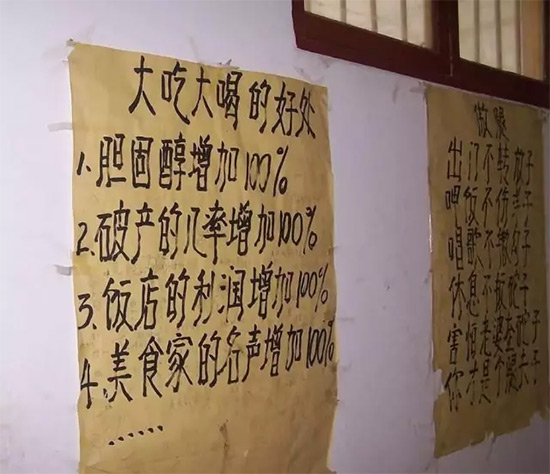 大吃大喝的好处
1.胆固醇增加100%
2.破产的几率增加100%
3.饭店的利润增加100%
4.美食家的名声增加100%
……
做腿
出门不转子
呷饭不伤子
唱歌不子
休息不子
害怕老婆子
你才是个子